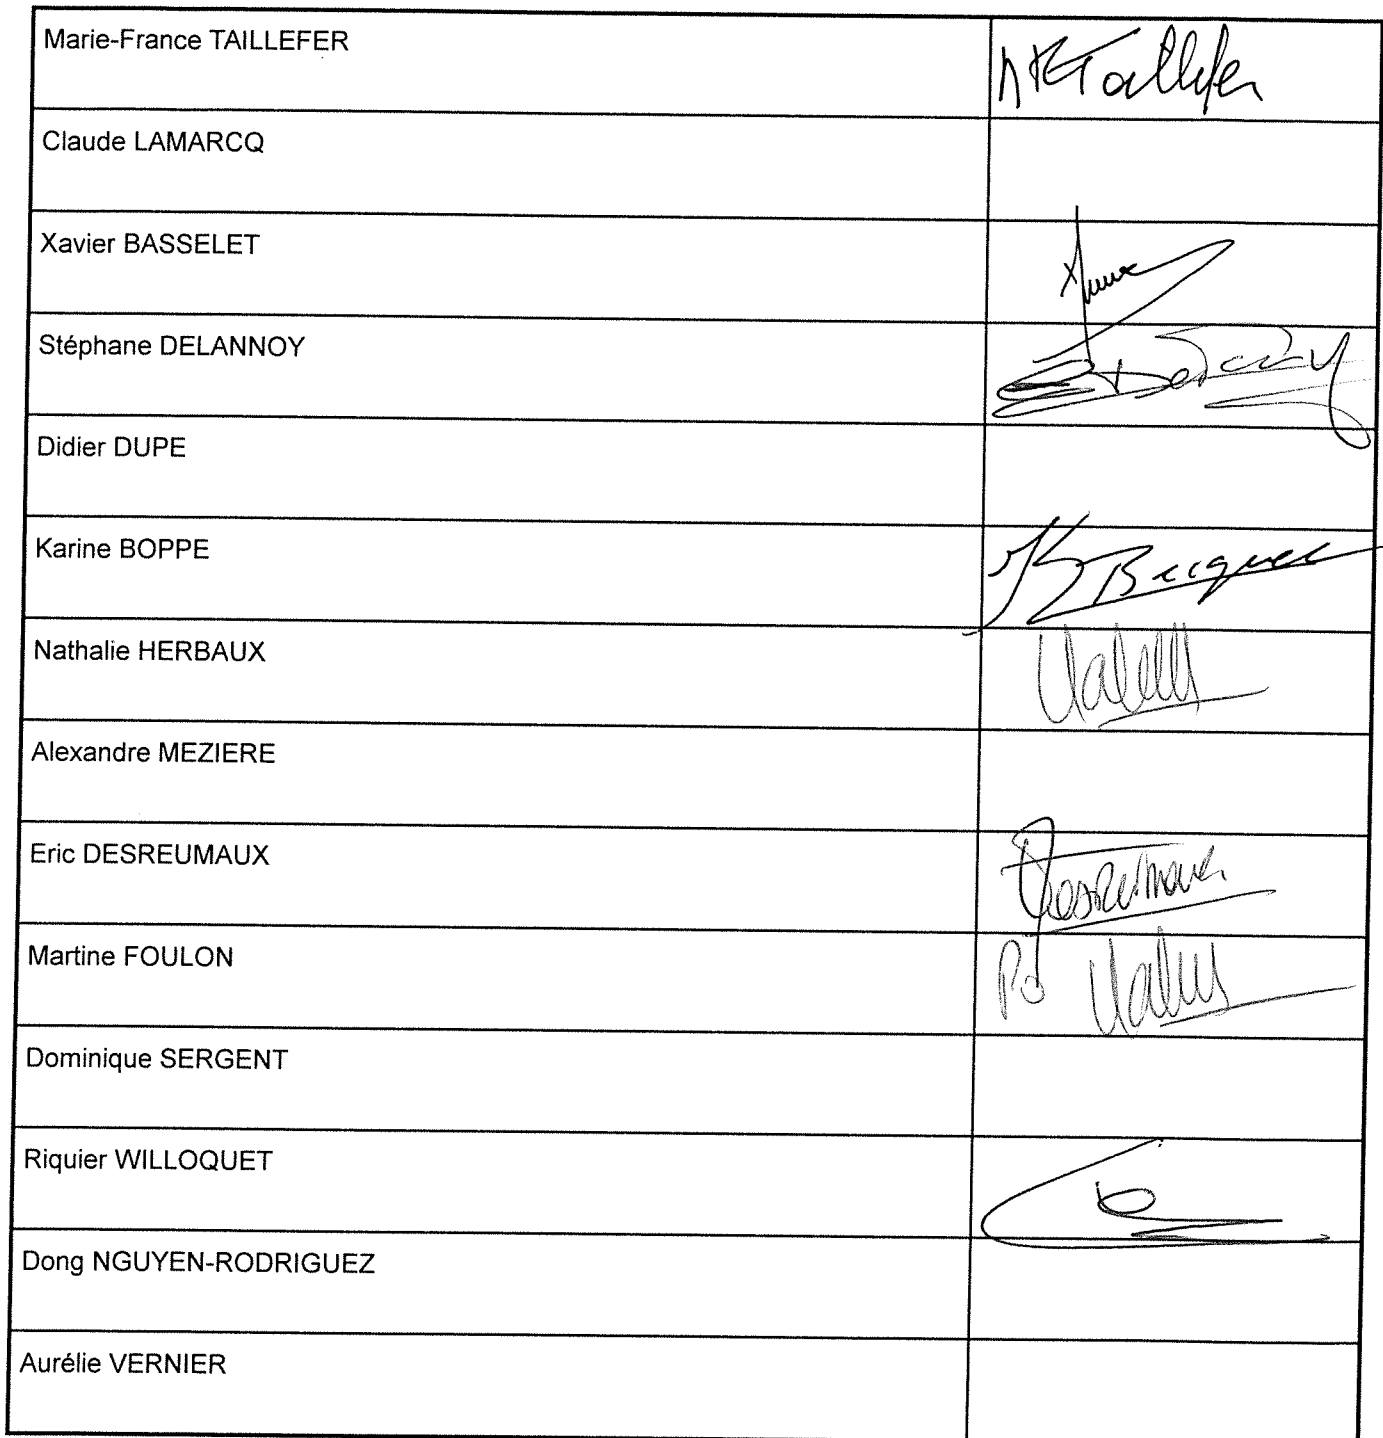 Marie-France TAILLEFER
MFTaillefer
Claude LAMARCQ
Xavier BASSELET
Stéphane DELANNOY
Delannoy
Didier DUPE
Karine BOPPE
Nathalie HERBAUX
Alexandre MEZIERE
Eric DESREUMAUX
Desreumaux
Martine FOULON
PO
Dominique SERGENT
Riquier WILLOQUET
Dong NGUYEN-RODRIGUEZ
Aurélie VERNIER